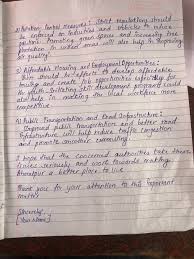 Pollution Control Measures: Strict regulations should
be enforced on industries and vehicles to reduce
pollution. Promoting green spaces and increasing tree
plantation in urban areas will also help in improving
air quality.
3) Affordable Housing and Employment Opportunities:
There should be efforts to develop affordable
housing and create job opportunities especially for
the youth. Initiating skill development programs could
also help in making the local workforce more
competitive.
4) Public Transportation and Road Infrastructure:
Improved public transportation and better road
infrastructure will help reduce traffic congestion
and promote smoother commuting.
I hope that the concerned authorities take these
issues seriously and work towards making
a better place to live.
Thank you for your attention to this important
matter.
Sincerely,
[Your Name]